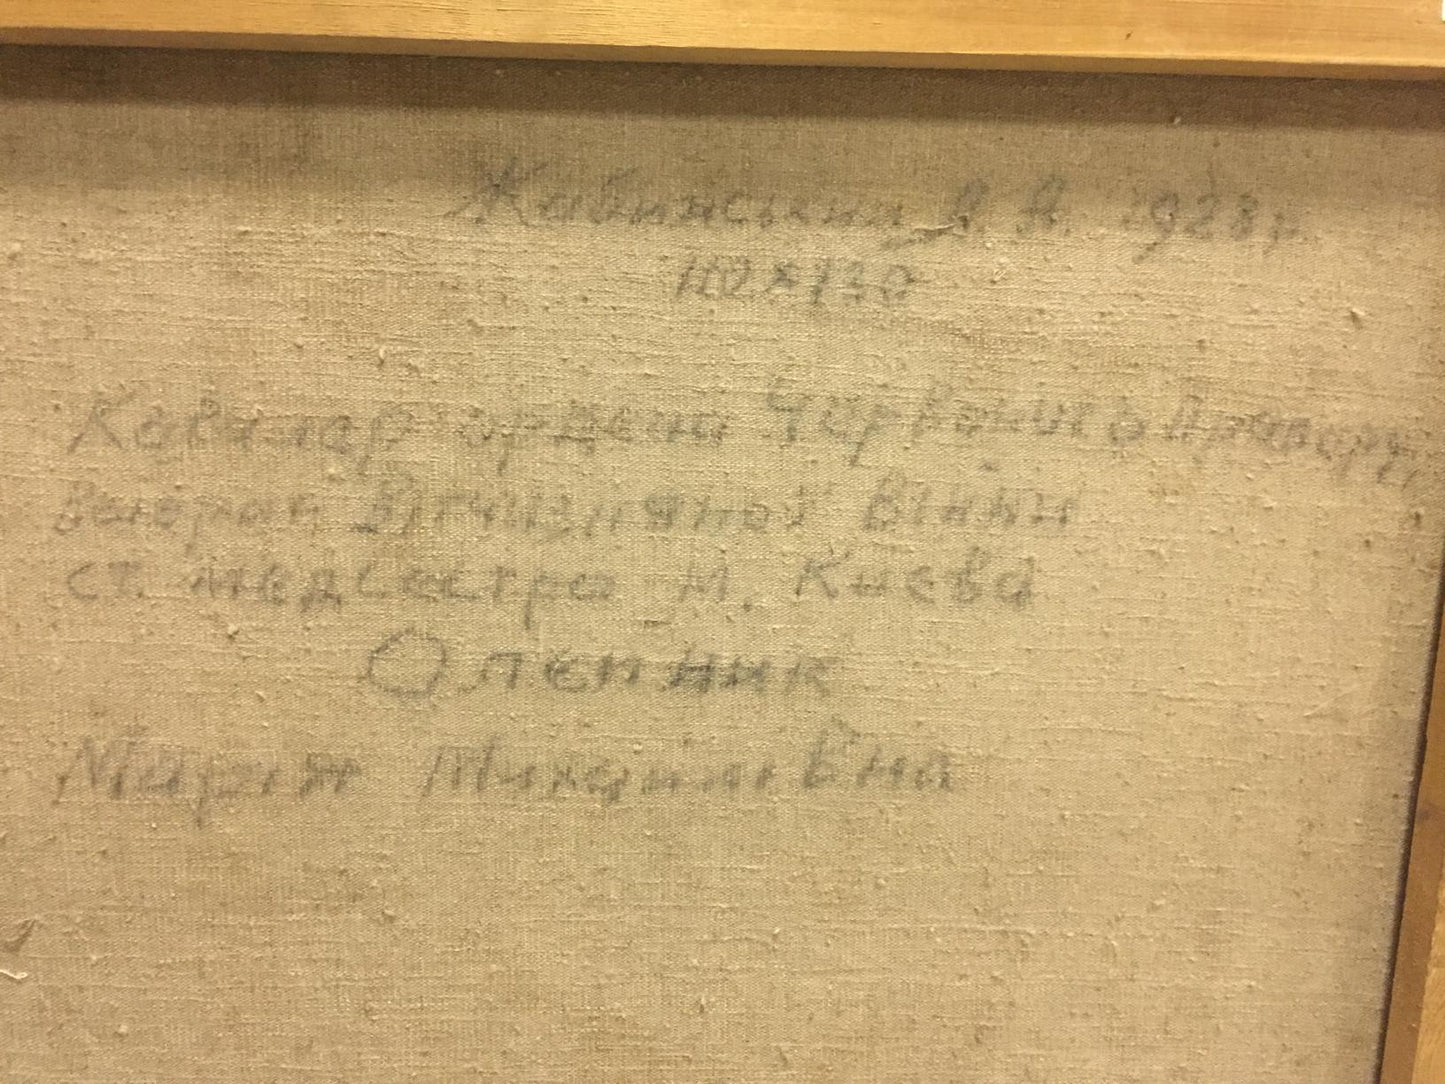 Жабинський А. А. 1928 г.
110x130
Кавалер ордена Червоного Прапору,
Ветеран Вітчизняної Війни
ст. медсестра м. Києва
Олейник
Марія Михайлівна